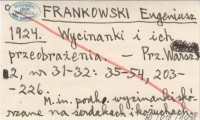 FRANKOWSKI Eugeniusz
1924. Wycinanki i ich
przeobrażenia. — Prz. Warsz.
2, nr 31-32: 35-54, 203-
-226.
M.in. podha. wycinanki skó-
rzane na serdakach i kożuchach